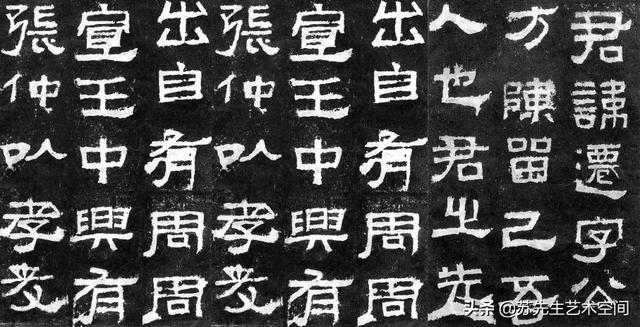 君諱遷字公
方陳留己吾
人也君之先
出自有周周
宣王中興有
張仲以孝友
出自有周周
宣王中興有
張仲以孝友
头条 @苏先生艺术空间